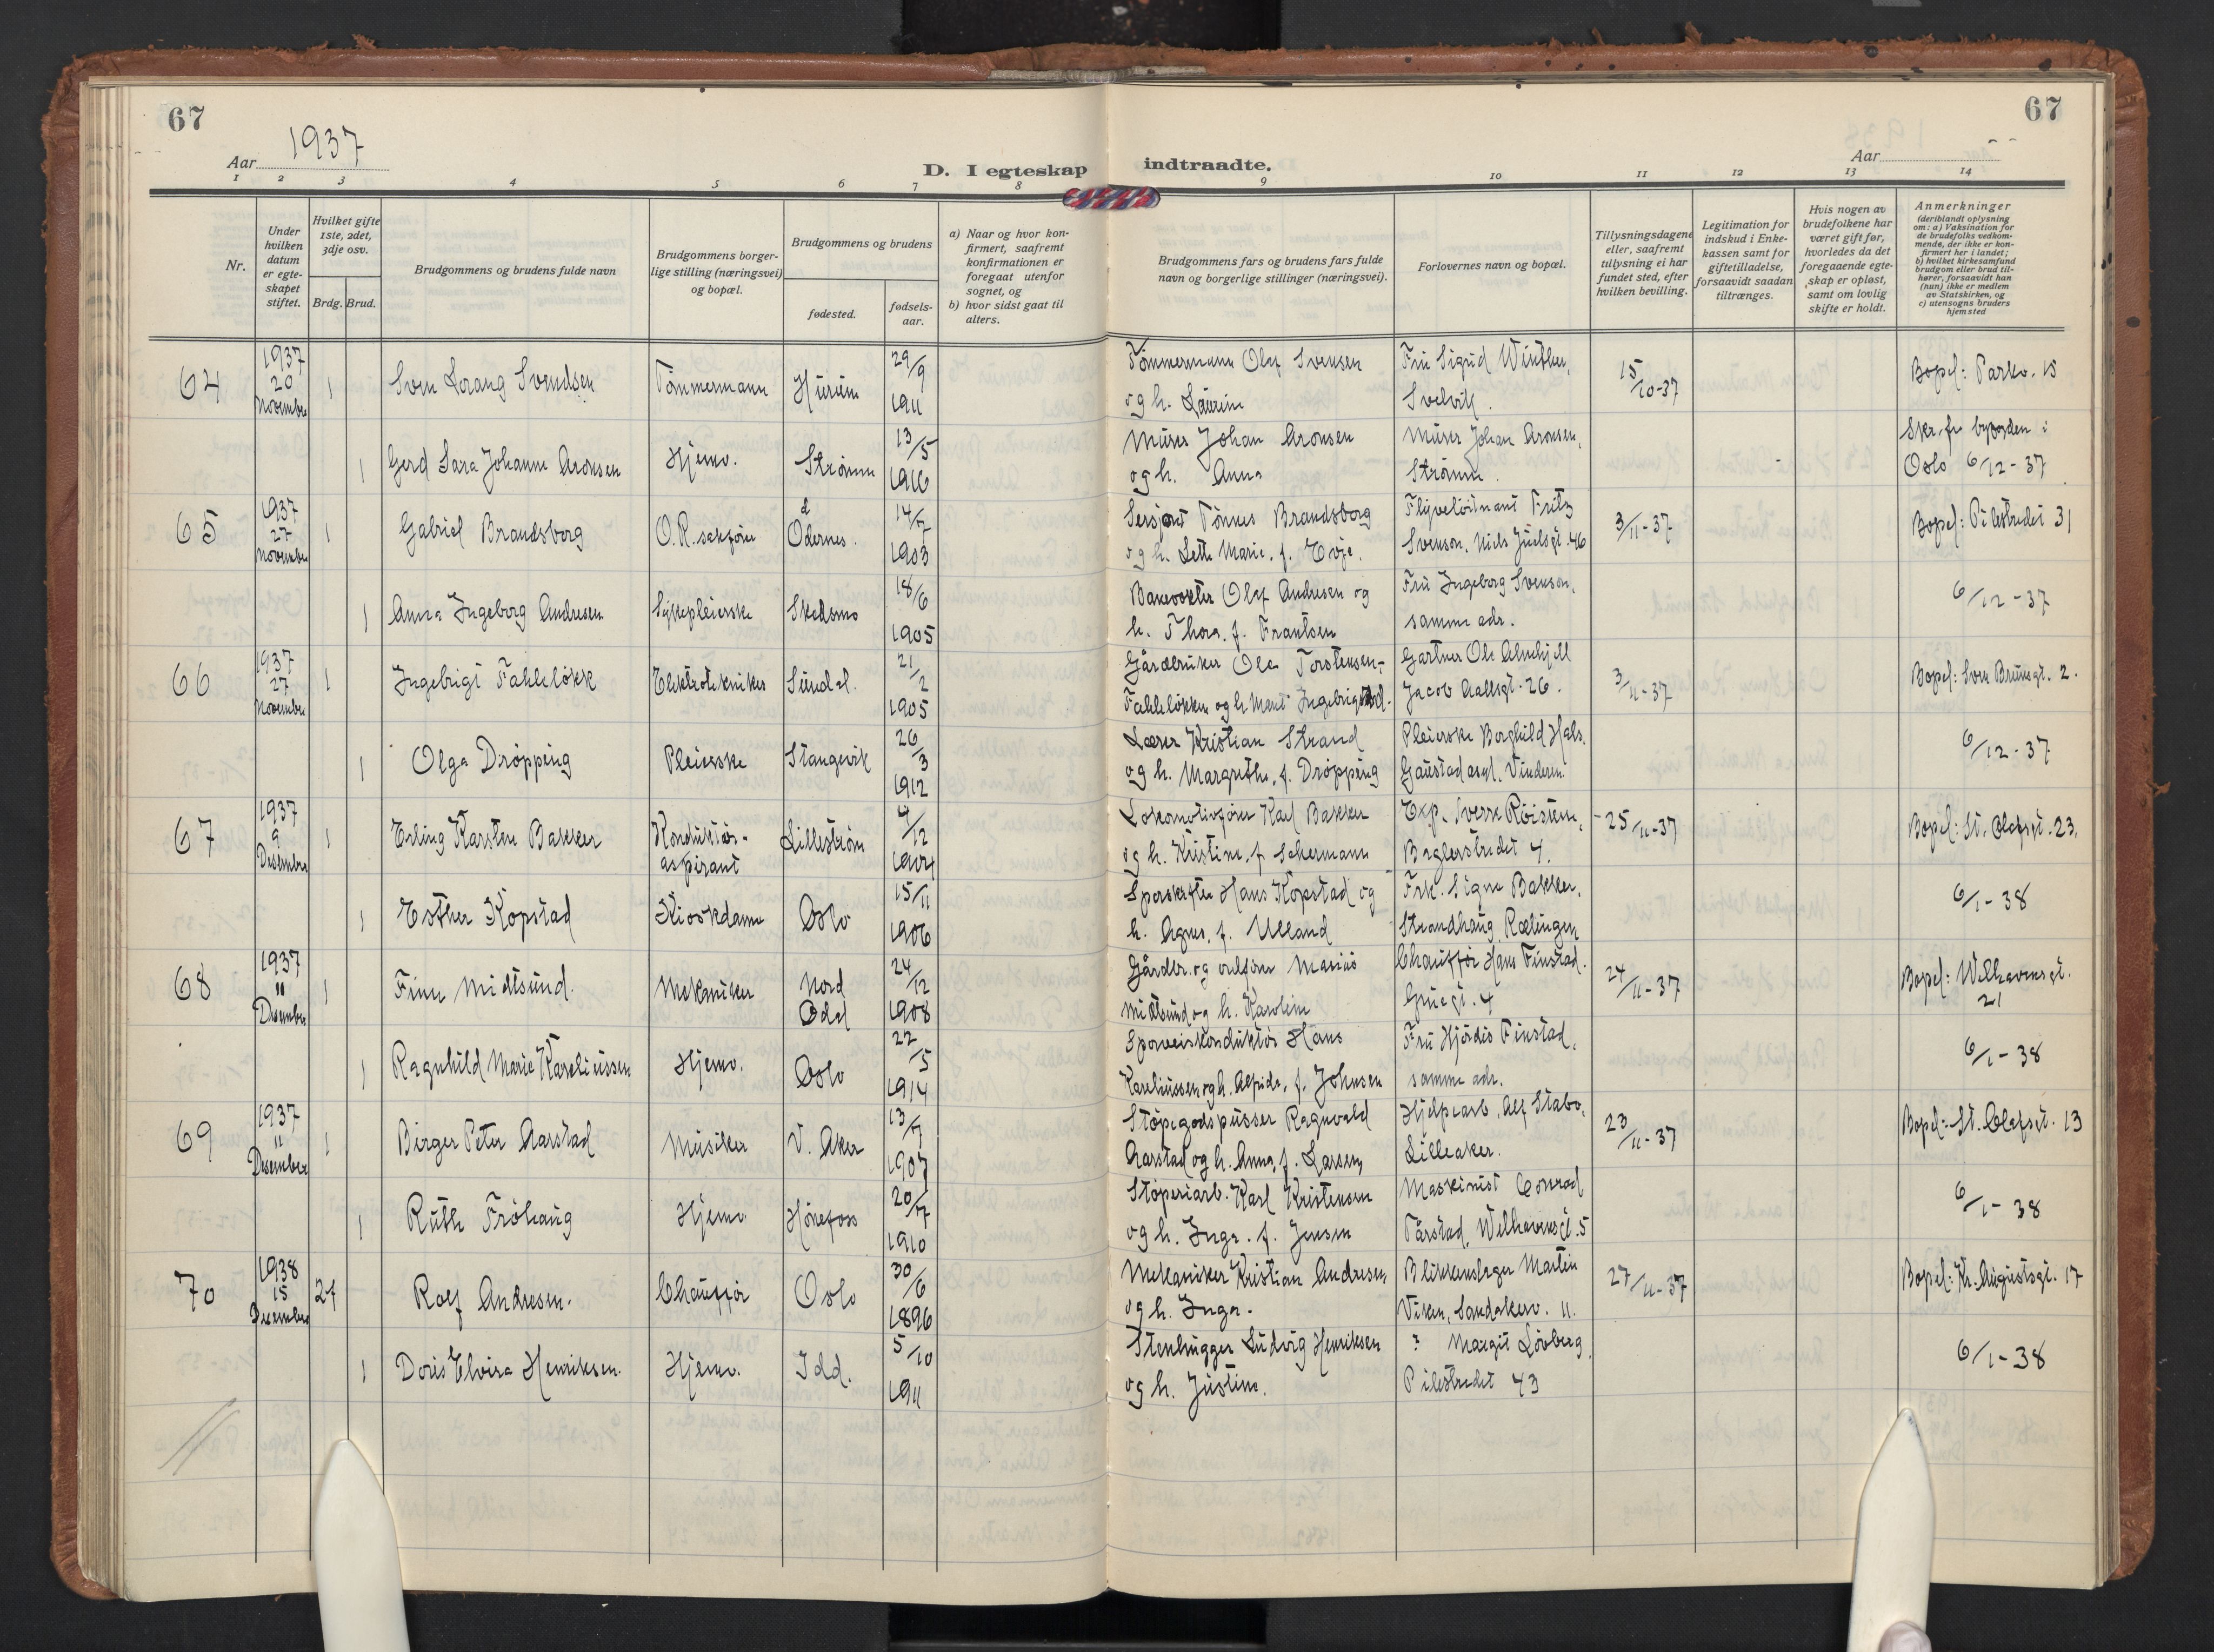 67
67
Aar 1937
D. I egteskap indtraadte.
Aar
1 2 3 4 5 6 7 8 9 10 11 12 13 14
Nr.
Under hvilken datum er egteskapet stiftet.
Hvilket gifte 1ste, 2det, 3dje osv.
Brdg. Brud.
Brudgommens og brudens fulde navn
Brudgommens borgerlige stilling (næringsvei) og bopæl.
Brudgommens og brudens
fødested.
fødselsaar.
a) Naar og hvor konfirmert, saafremt konfirmationen er foregaat utenfor sognet, og
b) hvor sidst gaat til alters.
Brudgommens fars og brudens fars fulde navn og borgerlige stillinger (næringsvei).
Forlovernes navn og bopæl.
Tillysningsdagene eller, saafremt tillysning ei har fundet sted, efter hvilken bevilling.
Legitimation for indskud i Enkekassen samt for giftetilladelse, forsaavidt saadan tiltrænges.
Hvis nogen av brudefolkene har været gift før, hvorledes da det foregaaende egteskap er opløst, samt om lovlig skifte er holdt.
Anmerkninger (deriblandt oplysning om: a) Vaksination for de brudefolks vedkommende, der ikke er konfirmert her i landet; b) hvilket kirkesamfund brudgom eller brud tilhører, forsaavidt han (hun) ikke er medlem av Statskirken, og c) utensogns bruders hjemsted
64 1937 20 November 1 Sven Lorang Svendsen Tömmermann Hurum 29/9 1911 Tömmermann Olaf Svensen og h. Laurine Fru Sigrid Winther, Svelvik. 15/10-37 Bopel: Parkv. 15
1 Gerd Sara Johanne Aronsen Hjemv. Strömm 13/5 1916 Murer Johan Aronsen og h. Anna Murer Johan Aronsen, Strömm. Skr. fr. byfogden i Oslo 6/12-37
65 1937 27 November 1 Gabriel Brandsborg O.R. sakförer Odernes. 14/7 1903 Sersjant Tönnes Brandsborg og h. Lette Marie, f. Evje. Flyvelöitnant Fritz Svenson, Niels Juelsgt. 46 3/11-37 Bopel: Pilestredet 31
1 Anna Ingeborg Andresen Sykepleierske Skedsmo 18/6 1905 Banevokter Olaf Andresen og h. Thora, f. Frantsen Fru Ingeborg Svenson, samme adr. 6/12-37
66 1937 27 November 1 Ingebrigt Fahlelökk Elektrotekniker Sundal. 21/2 1905 Gårdbruker Ola Torstensen-Fahlelökken og h. Marit Ingebrigtsd. Gartner Ole Almhjell Jacob Aallsgt. 26. 3/11-37 Bopel: Sven Brunsgt. 2.
1 Olga Dröpping Pleierske Stangvik 26/3 1912 Lærer Kristian Strand og h. Margrethe, f. Dröpping Pleierske Borghild Hals, Gaustad asyl, Vinderen. 6/12-37
67 1937 9 Desember 1 Erling Karsten Bakker Konduktör-aspirant Lilleström 4/12 1904 Lokomotivförer Karl Bakker og h. Kristine, f. Schermann Exp. Sverre Röisten, Baglerstredet 4. 25/11-37 Bopel: St. Olafsgt. 23.
1 Esther Kopstad Kioskdame Oslo 15/11 1906 Sporskifter Hans Kopstad og h. Agnes, f. Ulland Frk. Signe Bakker, Strandhaug, Rælingen 6/1-38
68 1937 11 Desember 1 Finn Midtsund. Mekaniker Nord Odal 24/12 1908 Gårdbr. og ordförer Marius Midtsund og h. Karoline Chaufför Hans Finstad. Gruegt. 4 24/11-37 Bopel: Welhavensgt. 21
1 Ragnhild Marie Kareliussen Hjemv. Oslo 22/5 1914 Sporveiskonduktör Hans Kareliussen og h. Alfride, f. Johnsen Fru Hjördis Finstad, samme adr. 6/1-38
69 1937 11 Desember 1 Birger Peter Aarstad Musiker V. Aker 13/7 1907 Stöpegodspusser Ragnvald Aarstad og h. Anna, f. Larsen Hjelpearb. Alf Stabo, Lilleaker. 23/11-37 Bopel: St. Olafsgt. 13
1 Ruth Fröhaug Hjemv Hönefoss 20/7 1910 Stöperiarb. Karl Kristensen og h. Inga. f. Jensen Maskinist Conrad Tårstad, Welhavensgt. 5 6/1-38
70 1938 15 Desember 2f Rolf Andresen. Chaufför Oslo 30/6 1896 Mekaniker Kristian Andresen og h. Inga. Blikkenslager Martin Viken, Sandakerv. 11. 27/11-37 Bopel: Kr. Augustsgt. 17
1 Doris Elvira Henriksen. Hjemv. Idd. 5/10 1911 Stenhugger Ludvig Henriksen og h. Justine. ? Margit Lövberg Pilestredet 43 6/1-38